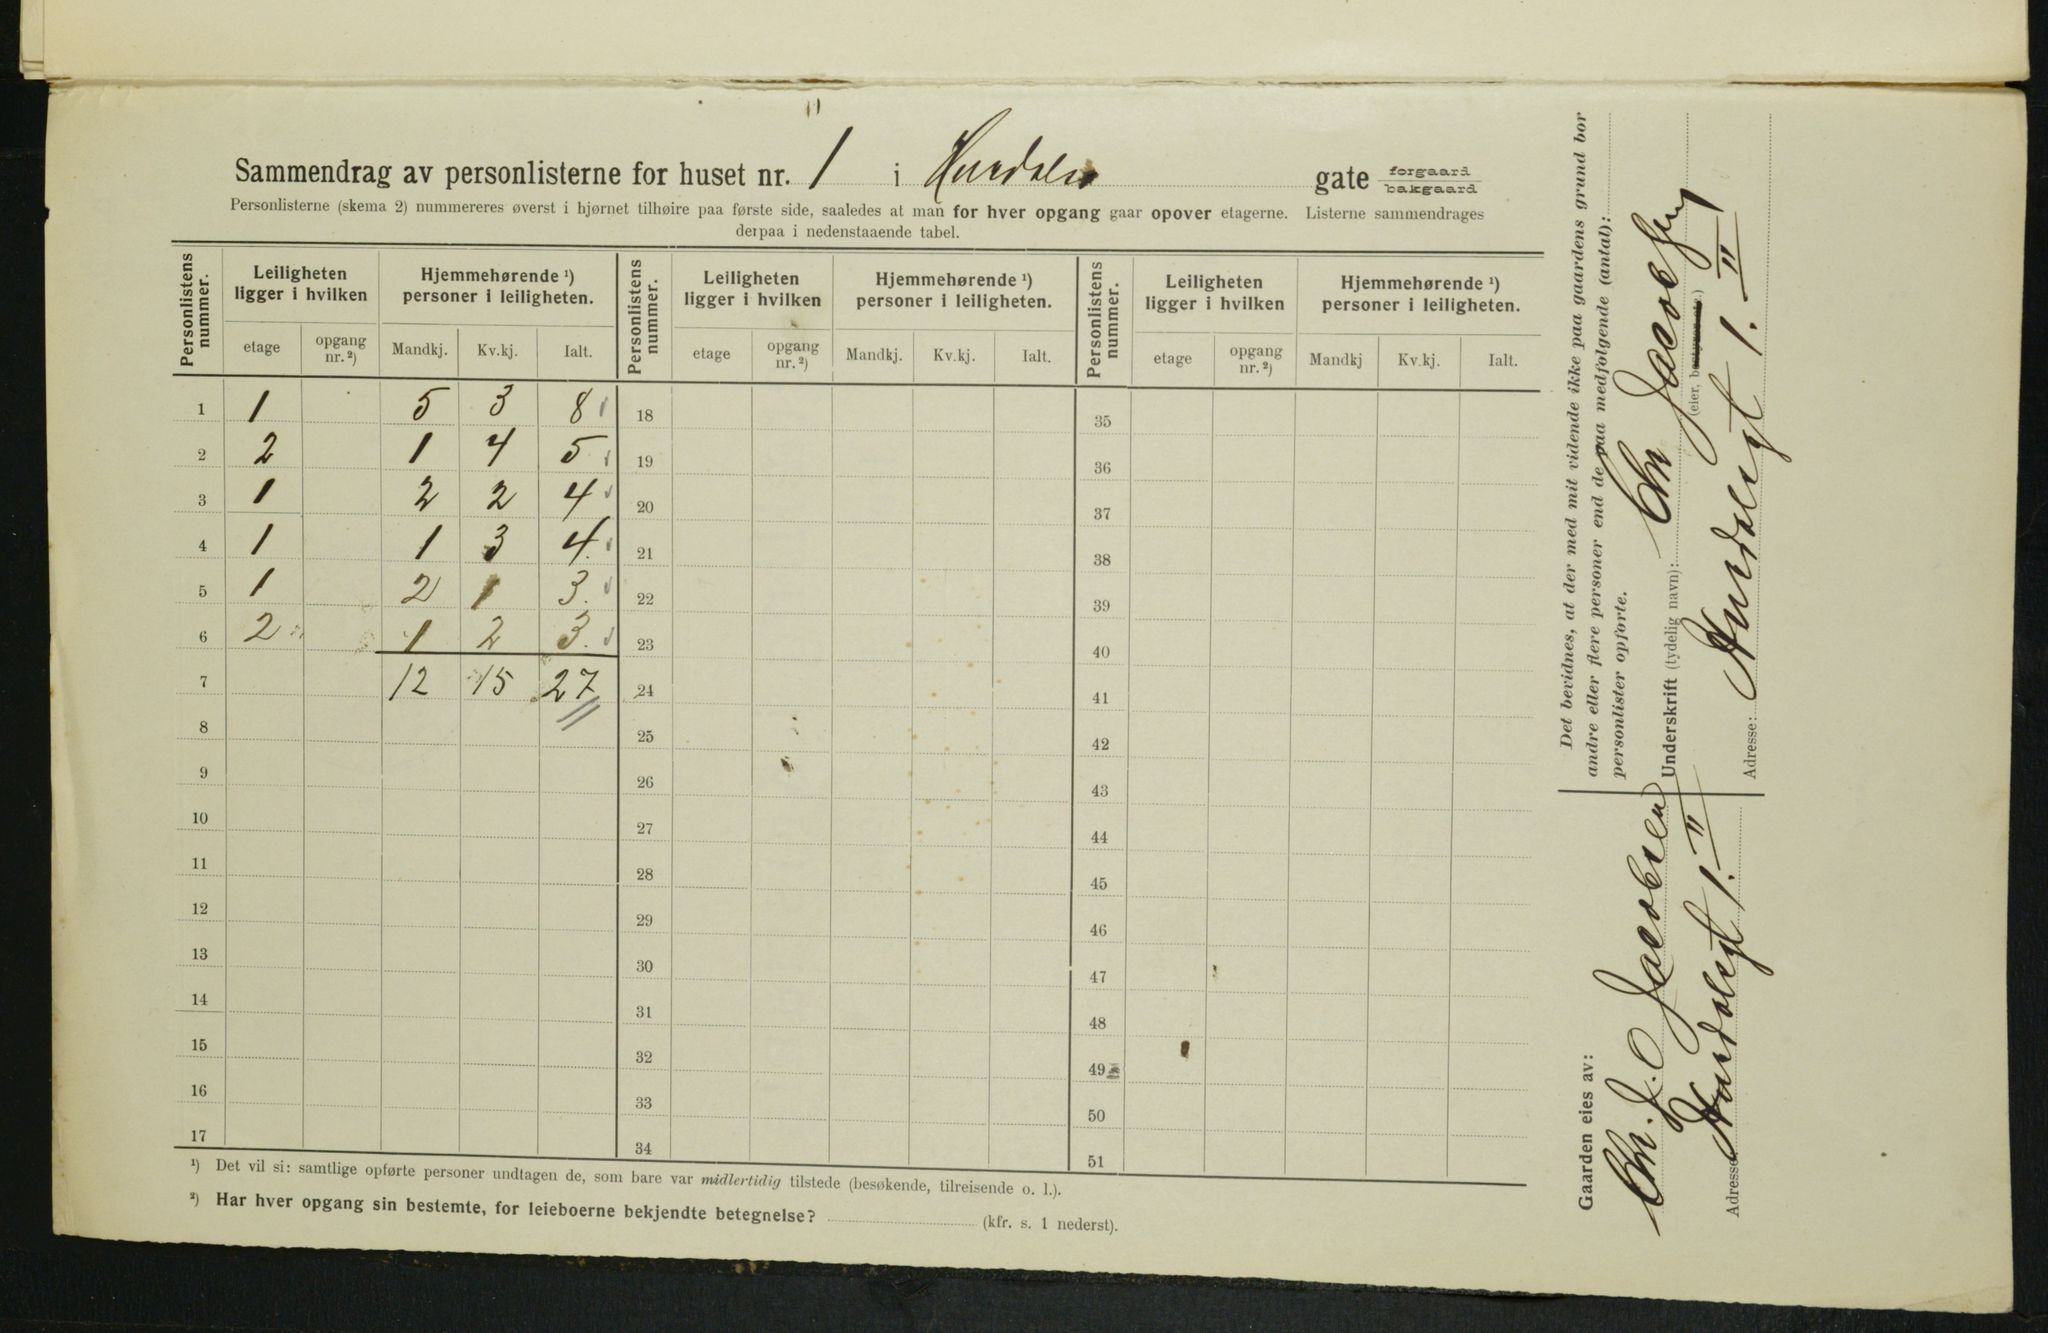 Sammendrag av personlisterne for huset nr. 1 i Hurdals gate forgaard bakgaard
Personlisterne (skema 2) nummereres øverst i hjørnet tilhøire paa første side, saaledes at man for hver opgang gaar opover etagerne. Listerne sammendrages
derpaa i nedenstaaende tabel.
Personlistens nummer. Leiligheten ligger i hvilken Hjemmehørende ¹) personer i leiligheten. Personlistens nummer. Leiligheten ligger i hvilken Hjemmehørende ¹) personer i leiligheten. Personlistens nummer. Leiligheten ligger i hvilken Hjemmehørende ¹) personer i leiligheten.
etage opgang nr. ²) Mandkj. Kv.kj. Ialt. etage opgang nr. ²) Mandkj. Kv.kj. Ialt. etage opgang nr. ²) Mandkj Kv.kj. Ialt.
1 1 5 3 8 18 35
2 2 1 4 5 19 36
3 1 2 2 4 20 37
4 1 1 3 4. 21 38
5 1 2 1 3. 22 39
6 2 1 2 3. 23 40
7 12 15 27 24 41
8 25 42
9 26 43
10 27 44
11 28 45
12 29 46
13 30 47
14 31 48
15 32 49
16 33 50
17 34 51
¹) Det vil si: samtlige opførte personer undtagen de, som bare var midlertidig tilstede (besøkende, tilreisende o. l.).
²) Har hver opgang sin bestemte, for leieboerne bekjendte betegnelse? (kfr. s. 1 nederst).
Gaarden eies av:
Chr. J. C Jacobsen
Adresse: Hurdalsgt 1. II
Det bevidnes, at der med mit vidende ikke paa gaardens grund bor
andre eller flere personer end de paa medfølgende (antal):
personlister opførte.
Underskrift (tydelig navn): Chr Jacobsen
(eier, bestyrer o. l.)
Adresse: Hurdalsgt 1. II